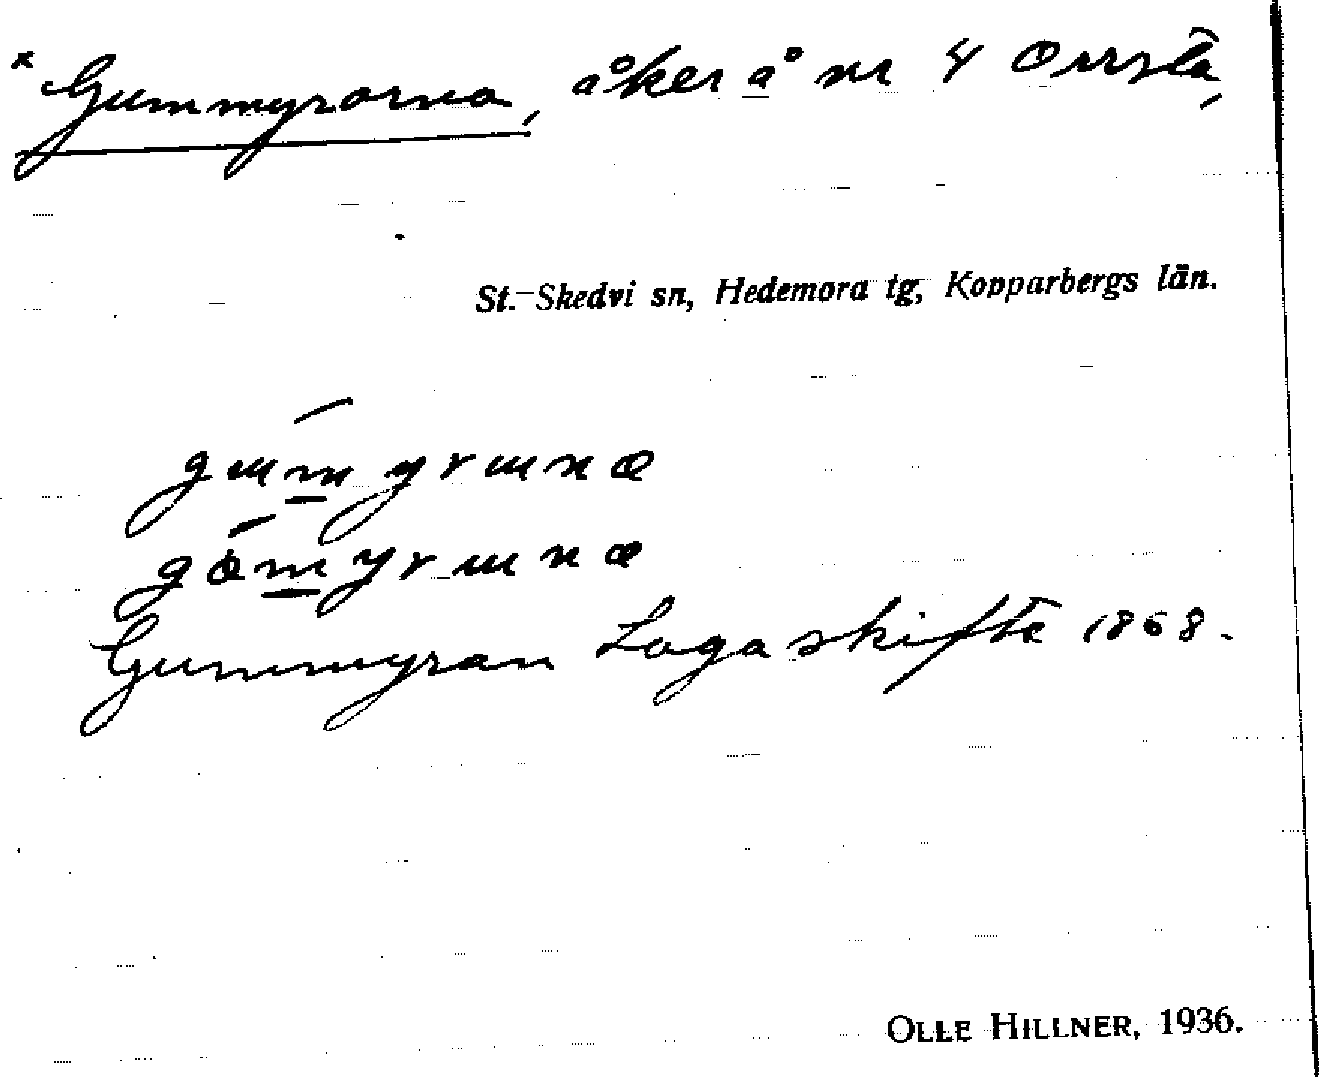 × Gummyrorna, åker å nr 4 Orrsta,
St. Skedvi sn, Hedemora tg, Kopparbergs län.
gummyrunæ
gòmyrunæ
Gummyran Laga skifte 1868.
OLLE HILLNER, 1936.